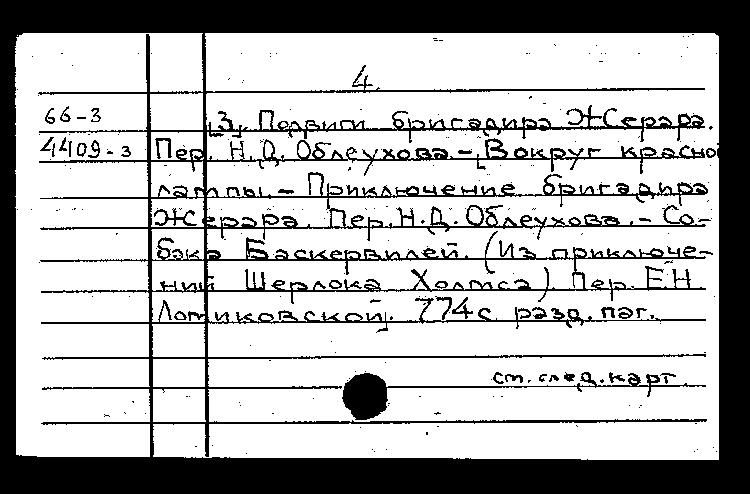 4.
66-3 [3]. Подвиги бригадира Жерара.
4409-3 Пер. Н.Д. Облеухова. - [Вокруг красной
лампы. - Приключение бригадира
Жерара. Пер. Н.Д. Облеухова. - Со-
бака Баскервилей. (Из приключе-
ний Шерлока Холмса). Пер. Е.Н.
Ломиковской]. 774 с. разд. паг.
см. след. карт.